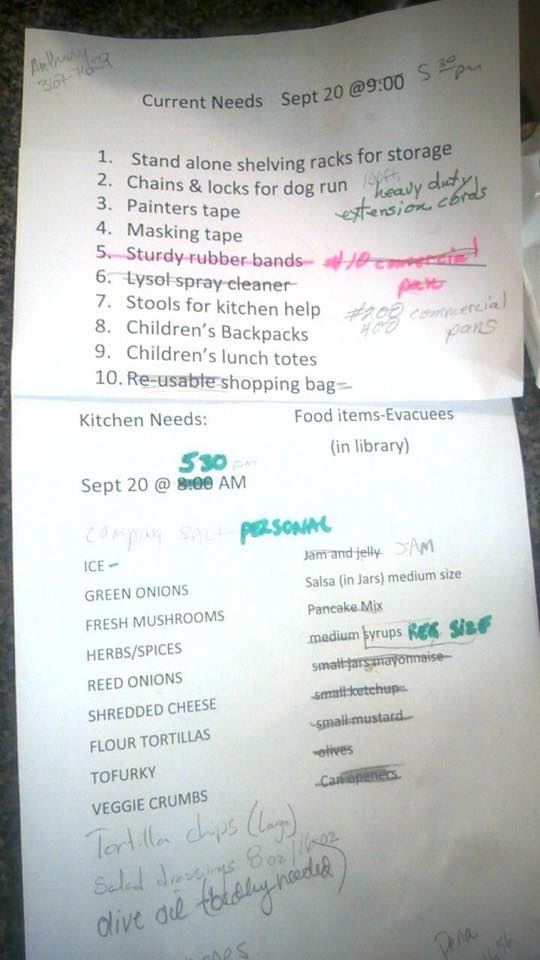 Anthony
Current Needs Sept 20 @9:00 5 30 pm
1. Stand alone shelving racks for storage
2. Chains & locks for dog run 100ft heavy duty
extension cords
3. Painters tape
4. Masking tape
5. Sturdy rubber bands #10 comercial
pans
6. Lysol spray cleaner
7. Stools for kitchen help #200 commercial
400 pans
8. Children's Backpacks
9. Children's lunch totes
10. Re-usable shopping bag
Kitchen Needs: Food items-Evacuees
(in library)
530 pm
Sept 20 @ 8:00 AM
Camping SALT PERSONAL
ICE - Jam and jelly JAM
GREEN ONIONS Salsa (in Jars) medium size
FRESH MUSHROOMS Pancake Mix
HERBS/SPICES medium syrups REG SIZE
REED ONIONS small jars mayonnaise
SHREDDED CHEESE small ketchup
FLOUR TORTILLAS small mustard
TOFURKY olives
VEGGIE CRUMBS Can openers
Tortilla chips (Large)
Salad dressings 8 oz/16oz
olive oil (badly needed)
Dena